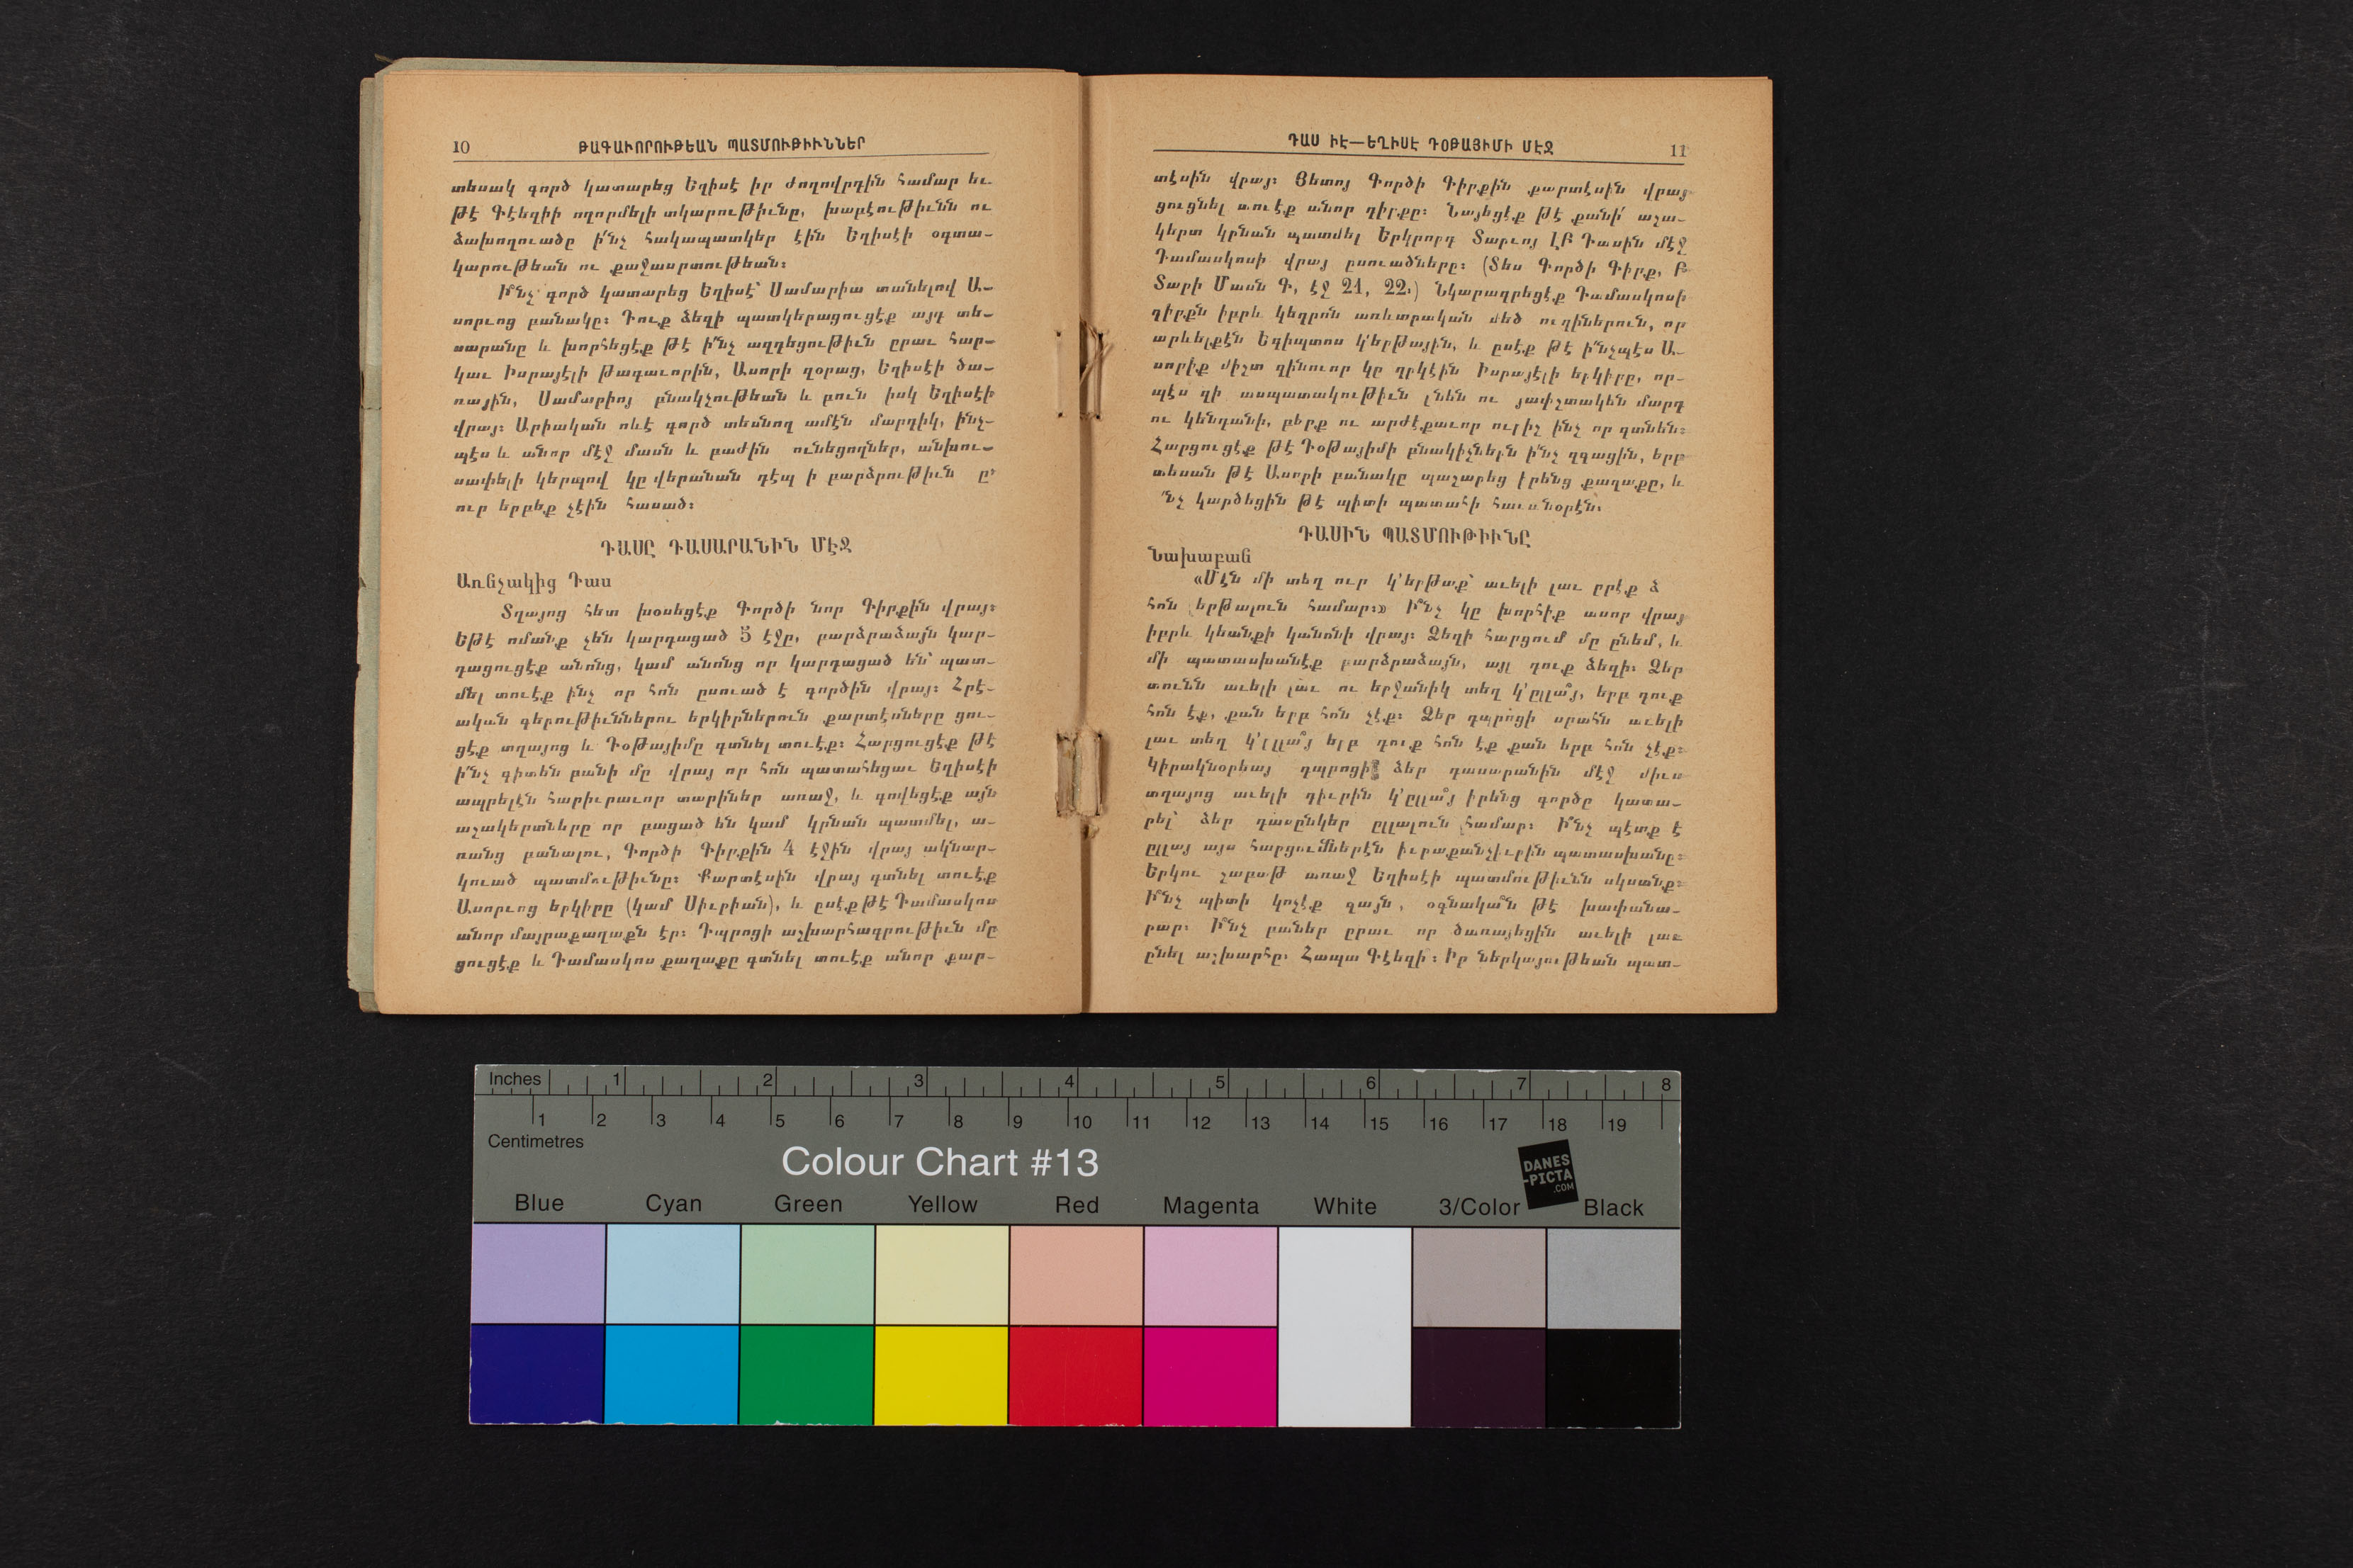 10 ԹԱԳԱՒՈՐՈՒԹԵԱՆ ՊԱՏՄՈՒԹԻՒՆՆԵՐ
տեսակ գործ կատարեց Եղիսէ իր ժողովրդին համար եւ
թէ Գէեզիի ողորմելի տկարութիւնը, խաբէութիւնն ու
ձախողուածը ի՛նչ հակապատկեր էին Եղիսէի օգտա-
կարութեան ու քաջասրտութեան։
Ի՞նչ գործ կատարեց Եղիսէ՝ Սամարիա տանելով Ա-
սորւոց բանակը։ Դուք ձեզի պատկերացուցէք այդ տե-
սարանը և խորհեցէք թէ ի՞նչ ազդեցութիւն ըրաւ հար-
կաւ Իսրայէլի թագաւորին, Ասորի զօրաց, Եղիսէի ծա-
ռային, Սամարիոյ բնակչութեան և բուն իսկ Եղիսէի
վրայ։ Արիական ոևէ գործ տեսնող ամէն մարդիկ, ինչ-
պէս և անոր մէջ մասն և բաժին ունեցողներ, անխու-
սափելի կերպով կը վերանան դէպ ի բարձրութիւն
ուր երբեք չէին հասած։
ԴԱՍԸ ԴԱՍԱՐԱՆԻՆ ՄԷՋ
Առնչակից Դաս
Տղայոց հետ խօսեցէք Գործի նոր Գիրքին վրայ։
Եթէ ոմանք չեն կարդացած 5 էջը, բարձրաձայն կար-
դացուցէք անոնց, կամ անոնց որ կարդացած են՝ պատ-
մել տուէք ինչ որ հոն ըսուած է գործին վրայ։ Հրէ-
ական գերութիւններու երկիրներուն քարտէսները ցու-
ցէք տղայոց և Դօթայիմը գտնել տուէք։ Հարցուցէք թէ
ի՞նչ գիտեն բանի մը վրայ որ հոն պատահեցաւ Եղիսէի
ապրելէն հարիւրաւոր տարիներ առաջ, և գովեցէք այն
աշակերտները որ բացած են կամ կրնան պատմել, ա-
ռանց բանալու, Գործի Գիրքին 4 էջին վրայ ակնար-
կուած պատմութիւնը։ Քարտէսին վրայ գտնել տուէք
Ասորւոց երկիրը (կամ Սիւրիան), և ըսէք թէ Դամասկոս
անոր մայրաքաղաքն էր։ Դպրոցի աշխարհագրութիւն մը
ցուցէք և Դամասկոս քաղաքը գտնել տուէք անոր քար-
ԴԱՍ ԻԷ—ԵՂԻՍԷ ԴՕԹԱՅԻՄԻ ՄԷՋ 11
տէսին վրայ։ Յետոյ Գործի Գիրքին քարտէսին վրայ
ցուցնել տուէք անոր դիրքը։ Նայեցէք թէ քանի՛ աշա-
կերտ կրնան պատմել Երկրորդ Տարւոյ ԼԲ Դասին մէջ
Դամասկոսի վրայ ըսուածները։ (Տես Գործի Գիրք, Բ
Տարի Մասն Գ, էջ 21, 22։) Նկարագրեցէք Դամասկոսի
դիրքն իբրև կեդրոն առևտրական մեծ ուղիներուն, որ
արևելքէն Եգիպտոս կ՚երթային, և ըսէք թէ ի՞նչպէս Ա-
սորիք միշտ զինուոր կը ղրկէին Իսրայէլի երկիրը, որ-
պէս զի ասպատակութիւն ընեն ու յափշտակեն մարդ
ու կենդանի, բերք ու արժէքաւոր ուրիշ ինչ որ գտնեն։
Հարցուցէք թէ Դօթայիմի բնակիչներն ի՞նչ զգացին, երբ
տեսան թէ Ասորի բանակը պաշարեց իրենց քաղաքը, և
՞նչ կարծեցին թէ պիտի պատահի հաւանօրէն։
ԴԱՍԻՆ ՊԱՏՄՈՒԹԻՒՆԸ
Նախաբան
«Մէն մի տեղ ուր կ՚երթաք՝ աւելի լաւ ըրէք ձ
հոն երթալուն համար։» Ի՞նչ կը խորհիք ասոր վրայ
իբրև կեանքի կանոնի վրայ։ Ձեզի հարցում մը ընեմ, և
մի պատասխանէք բարձրաձայն, այլ դուք ձեզի։ Ձեր
տունն աւելի լաւ ու երջանիկ տեղ կ՚ըլլա՞յ, երբ դուք
հոն էք, քան երբ հոն չէք։ Ձեր դպրոցի սրահն աւելի
լաւ տեղ կ՚ըլլա՞յ երբ դուք հոն էք քան երբ հոն չէք։
Կիրակնօրեայ դպրոցի ձեր դասարանին մէջ միւս
տղայոց աւելի դիւրին կ՚ըլլա՞յ իրենց գործը կատա-
րել՝ ձեր դասընկեր ըլլալուն համար։ Ի՞նչ պէտք է
ըլլայ այս հարցումներէն իւրաքանչիւրին պատասխանը։
Երկու շաբաթ առաջ Եղիսէի պատմութիւնն սկսանք։
Ի՞նչ պիտի կոչէք զայն, օգնակա՞ն թէ խափանա-
րար։ Ի՞նչ բաներ ըրաւ որ ծառայեցին աւելի լաւ
ընել աշխարհը։ Հապա Գէեզի։ Իր ներկայութեան պատ-
Inches 1 2 3 4 5 6 7 8
1 2 3 4 5 6 7 8 9 10 11 12 13 14 15 16 17 18 19
Centimetres
Colour Chart #13
DANES
-PICTA
.COM
Blue Cyan Green Yellow Red Magenta White 3/Color Black